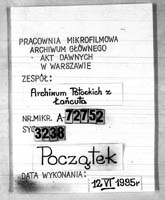 PRACOWNIA MIKROFILMOWA
ARCHIWUM GŁÓWNEGO
AKT DAWNYCH
W WARSZAWIE
ZESPÓŁ:
Archiwum Potockich z
Łańcuta
NR.MIKR. A-72752
SYG. 3238
Początek
DATA WYKONANIA:
12 VI 1985 r